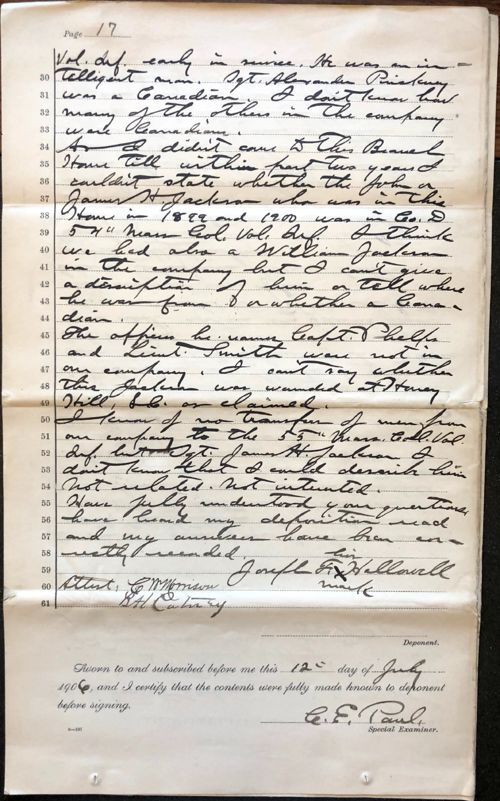 Page 17
Vol. Inf. early in service. He was an in=
30 telligent man. Sgt. Alexander Pinckney
31 was a Canadian. I don't know how
32 many of the others in the company
33 were Canadian.
34 As I didn't come to this Branch
35 Home till within past two years I
36 couldn't state whether the John or
37 James H. Jackson who was in this
38 Home in 1899 and 1900 was in Co. D
39 54" Mass Col. Vol. Inf. I think
40 we had also a William Jackson
41 in the company but I can't give
42 a description of him or tell where
43 he was from or whether a Cana-
44 dian.
45 The officers he names Capt. Phelps
46 and Lieut. Smith were not in
47 our company. I can't say whether
48 this Jackson was wounded at Honey
49 Hill, S.C. as claimed.
50 I know of no transfer of men from
51 our company to the 55" Mass. Col. Vol.
52 Inf. but Sgt. James H. Jackson I
53 don't know that I could describe him
54 Not related. Not interested.
55 Have fully understood your questions
56 have heard my deposition read
57 and my answers have been cor-
58 rectly recorded.
his
59 Joseph F. X Hallowell
mark
60 Attest, C W Morrison
61
Deponent.
Sworn to and subscribed before me this 12" day of July
1906, and I certify that the contents were fully made known to deponent
before signing.
C. E. Paul.
Special Examiner.